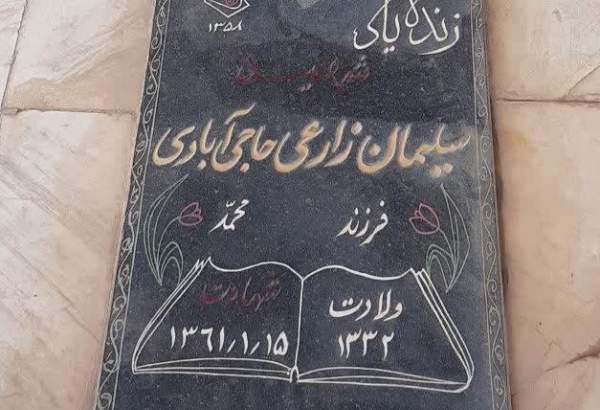 ۱۳۵۸
زنده یاد
سلیمان زارعی حاجی آبادی
فرزند محمّد
ولادت
۱۳۳۲
شهادت
۱۳۶۱/۱/۱۵